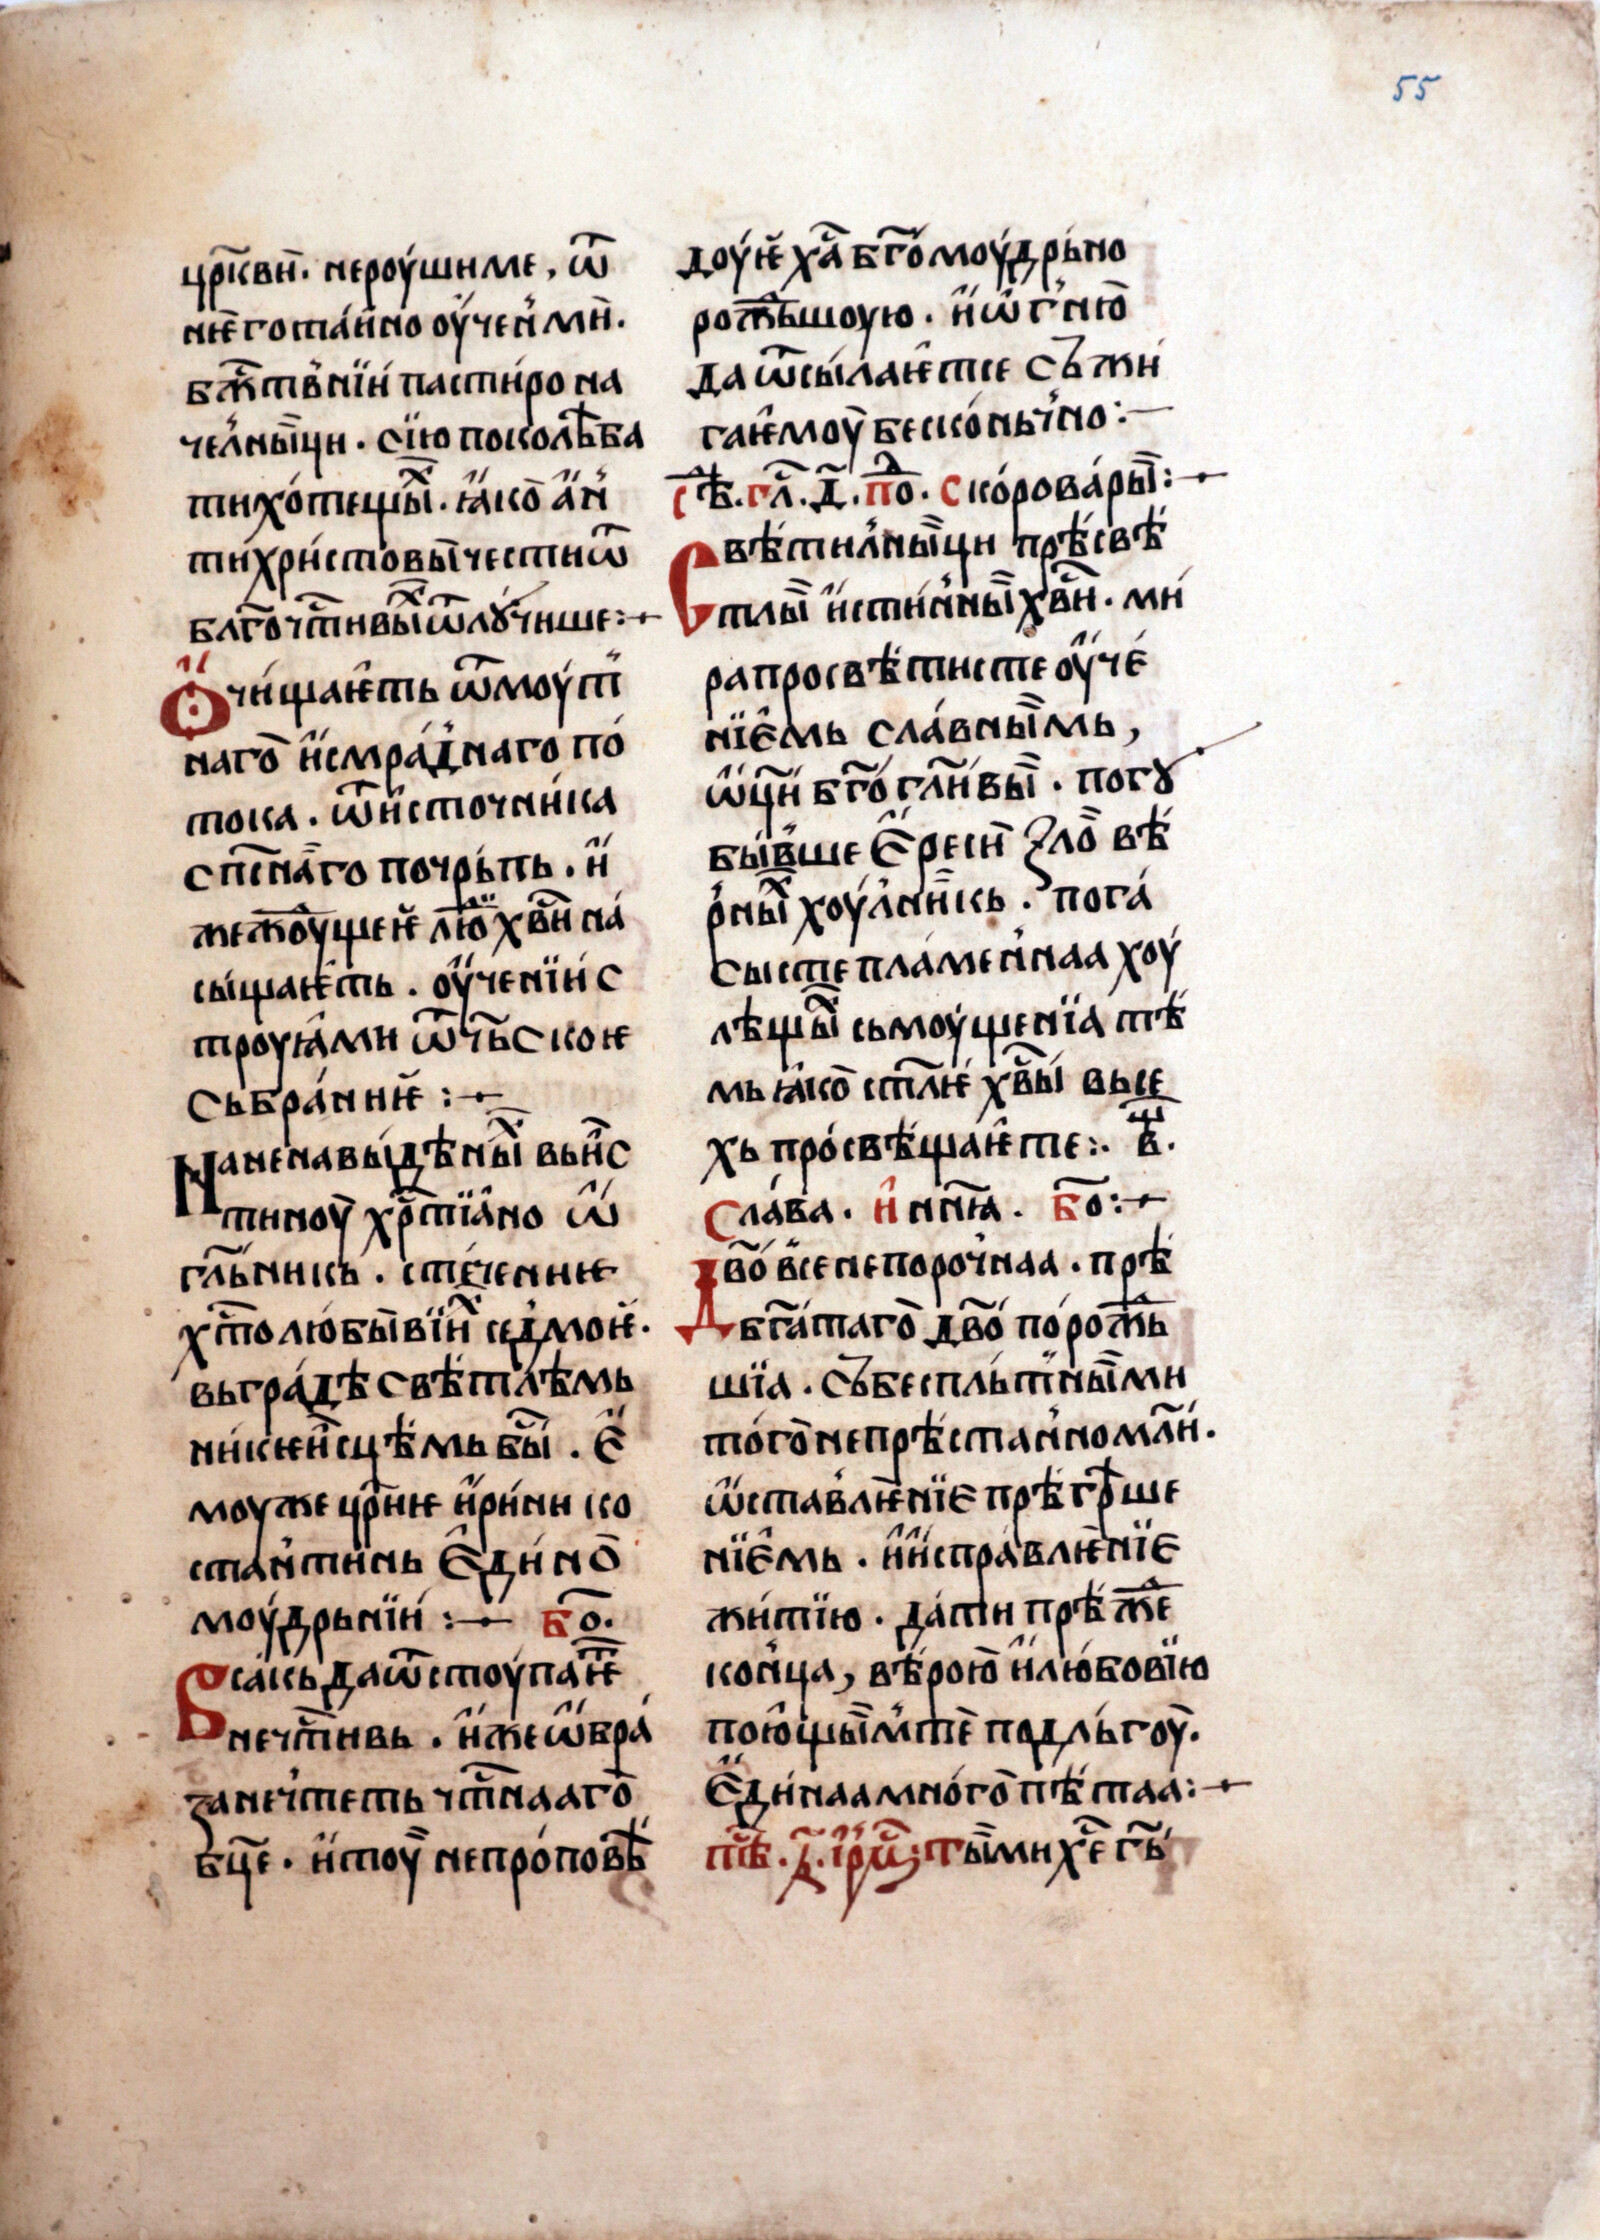 55
цр҃квїи҃. нероу́шиме, ѿ
нѥ҃го та́ино оу҆чен҆ми҃.
бж҃тв҆нїи пасти́ро на
чел҆ны҃ци. сїю поколѣ́ба
ти хо́тещы̾х. ꙗ҆ко̀ а҆н҆
ти́хри́стовы̀ чести ѿ
блг҃очт҃ивы̾х ѿлꙋ́чише:~
Ѻ҆чи́щаѥ҆ть ѿ моу́т
наго̀ и҆ смра́д҆наго по́
тока. ѿ и҆сточни́ка
спс҃на҃го почрь́пь. и҆
же жеждоущеѥ лю҃ хв҃и на
сы́щаѥть. оу҆ченїи с
троуꙗ́ми ѿчь҃скоѥ
събра́нниѥ:~
На ненавы́дѣ́ны̾х вьи҃с
тиноу хр҃тїа҆но ѡ҆
гл҃ьникь. сте́чениѥ
хт҃олюбы҃вїи̾х сед҆моѥ.
вьгра́дѣ свѣ́тлѣмь
ни́кѥи҃сцѣ́мь бы҃. ѥ҆
моу же цр҃иѥ и҆ри́ни ко
стан҆ти́нь ѥ҆ди́но̀
моу́дрьнїи:~ бо҃.
Всакь да ѿстоупаѥ҃т
нечт҃ивь. и҆же ѡ҆бра́
за неч҆теть чт҃наго̀
бц҃е. и҆ тоу̀ непро́повѣ̾
доу́ѥ ха҃ бг҃о̀моу́дрьно
рождьшоую. и҆ ѡ҆г҆ню̀
да ѿсы́лаѥ҆тсе съ жи́
гаѥ҆моу̀ бес ко́ньч҆но:~
сѣ. гл҃. д҃. по̾д. Ско́рова́ры̀:~
Свѣ́тил҆ны҃ци прѣ́свѣ́
тлы҃ и҆сти́н҆ны҃ хв҃и. ми́
ра просвѣ́тисте оу҆че́
нїѥ҆мь сла́вны҃мь,
ѡ҆ц҃и бг҃огл҃и́вы҃. погꙋ
бы́в҆ше ѥ҆реси҃ ꙃло̀ вѣ́
р҆ны̾х хоу́л҆ни҃кь. пога́
сысте пла́мен҆наа хоу́
лѣщы̾х сьмоу́щенїа тѣ̈
мь ꙗ҆ко̀ ст҃лиѥ хв҃ы вьсе
хь про́свѣ́щаѥ҆те:. в҃щ.
Сла́ва. и҆ нин҃ꙗ. бо҃:~
Дво҃ в҆сенепороч҆наа. прѣ́
бг҃а́таго̀ дво҃ по́рождь
шїа. съ бесплът҆ны҃ми
то́го̀ непрѣ́стан҆но мл҃и.
ѡ҆став҆лѥ҃нїе прѣ́грѣ́ше
нїе҆мь. и҆ и҆справлѥ҃нїе
жи́тїю. да́ти прѣ́же
кон҆ца, вѣ́рою̀ и҆ лю́бовїю
пою҆щы҃м҆ те̏ по дль́гоу̀.
ѥ҆ди́наа мно́го̀ пѣ́таа:~
пѣ҃. д҃. і҆рмѡ҃с: Ты҃ ми хе҃ гь҃